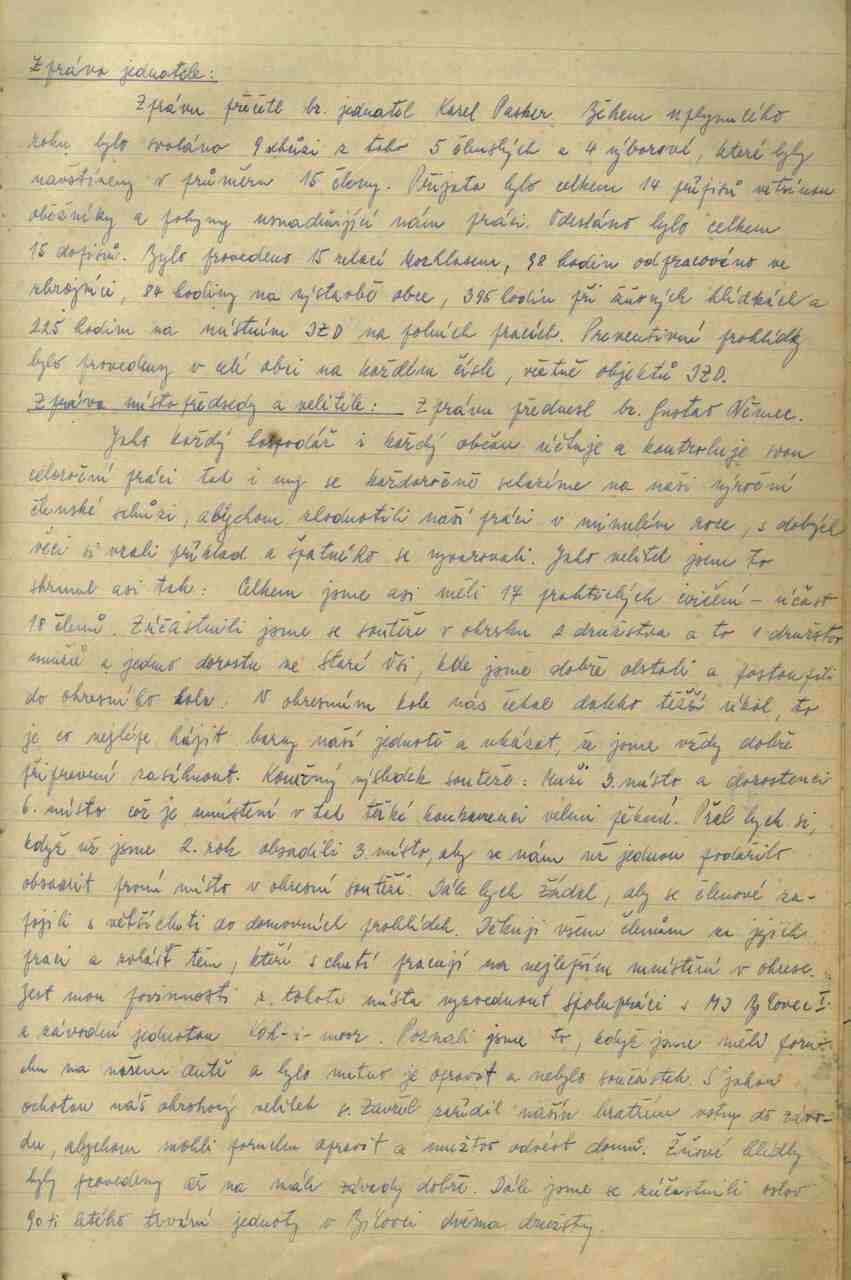 Zpráva jednatele:
Zprávu přečetl br. jednatel Karel Pasker. Během uplynulého
roku bylo svoláno 9 schůzí z toho 5 členských a 4 výborové, které byly
navštíveny v průměru 15 členy. Přijato bylo celkem 14 přípisů většinou
oběžníky a pokyny usnadňující nám práci. Odesláno bylo celkem
15 dopisů. Bylo provedeno 15 relací rozhlasem, 98 hodin odpracováno ve
zbrojnici, 84 hodiny na výstavbě obce, 396 hodin při žňových hlídkách a
225 hodin na místním JZD na polních pracích. Preventivní prohlídky
byly provedeny v celé obci na každém čísle, včetně objektů JZD.
Zpráva místopředsedy a velitele: Zprávu přednesl br. Gustav Němec.
Jako každý hospodář i každý občan účtuje a kontroluje svou
celoroční práci tak i my se každoročně scházíme na naší výroční
členské schůzi, abychom zhodnotili naší práci v minulém roce, s dobých
věcí si vzali příklad a špatného se vyvarovali. Jako velitel jsem to
shrnul asi tak: Celkem jsme asi měli 17 praktických cvičení – účast
18 členů. Zúčastnili jsme se soutěže v okrsku 2 družstva a to 1 družstvo
mužů a jedno dorostu ve Staré Vsi, kde jsme dobře obstáli a postoupili
do okresního kola. V okresním kole nás čekal daleko těžší úkol, to
je co nejlépe hájit barvy naší jednotě a ukázat, že jsme vždy dobře
připraveni zasáhnout. Konečný výsledek soutěže: Muži 3. místo a dorostenci
6. místo což je umístění v tak těžké konkurenci velmi pěkné. Přál bych si,
když už jsme 2. rok obsadili 3. místo, aby se nám už jednou podařilo
obsadit první místo v okresní soutěži. Dále bych žádal, aby se členové za-
pojili s větší chutí do domovních prohlídek. Děkuji všem členům za jejich
práci a zvlášť těm, kteří s chutí pracují na nejlepším umístění v okrese.
Jest mou povinností z tohoto místa vyzvednout spolupráci s MJ Bílovec I.
a závodní jednotou Koh-i-noor. Poznali jsme to, když jsme měli poru-
chu na našem autě a bylo nutno je opravit a nebylo součástek. S jakou
ochotou náš okrskový velitel s. Zavřel zařídil našim bratřím vstup do závo-
du, abychom mohli poruchu opravit a mužstvo odvést domů. Žňové hlídky
byly provedeny až na malé závady dobře. Dále jsme se zúčastnili oslav
90ti letého trvání jednoty v Bílovci dvěma družstvy.